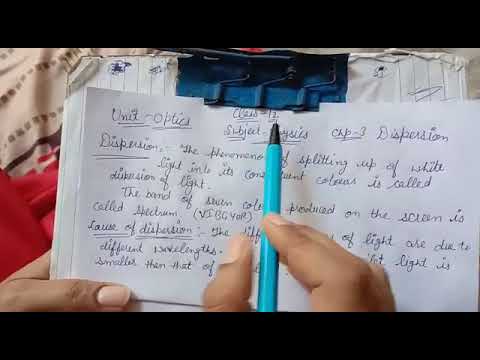 Unit - Optics Class - 12
Subject - Physics Chp-3 Dispersion
Dispersion :- The phenomenon of splitting up of white
light into its constituent colours is called
dipersion of light.
The band of seven colours produced on the screen is
called spectrum (VIBGYOR)
Cause of dispersion :- The of light are due to
different wavelengths. light is
smaller then that of